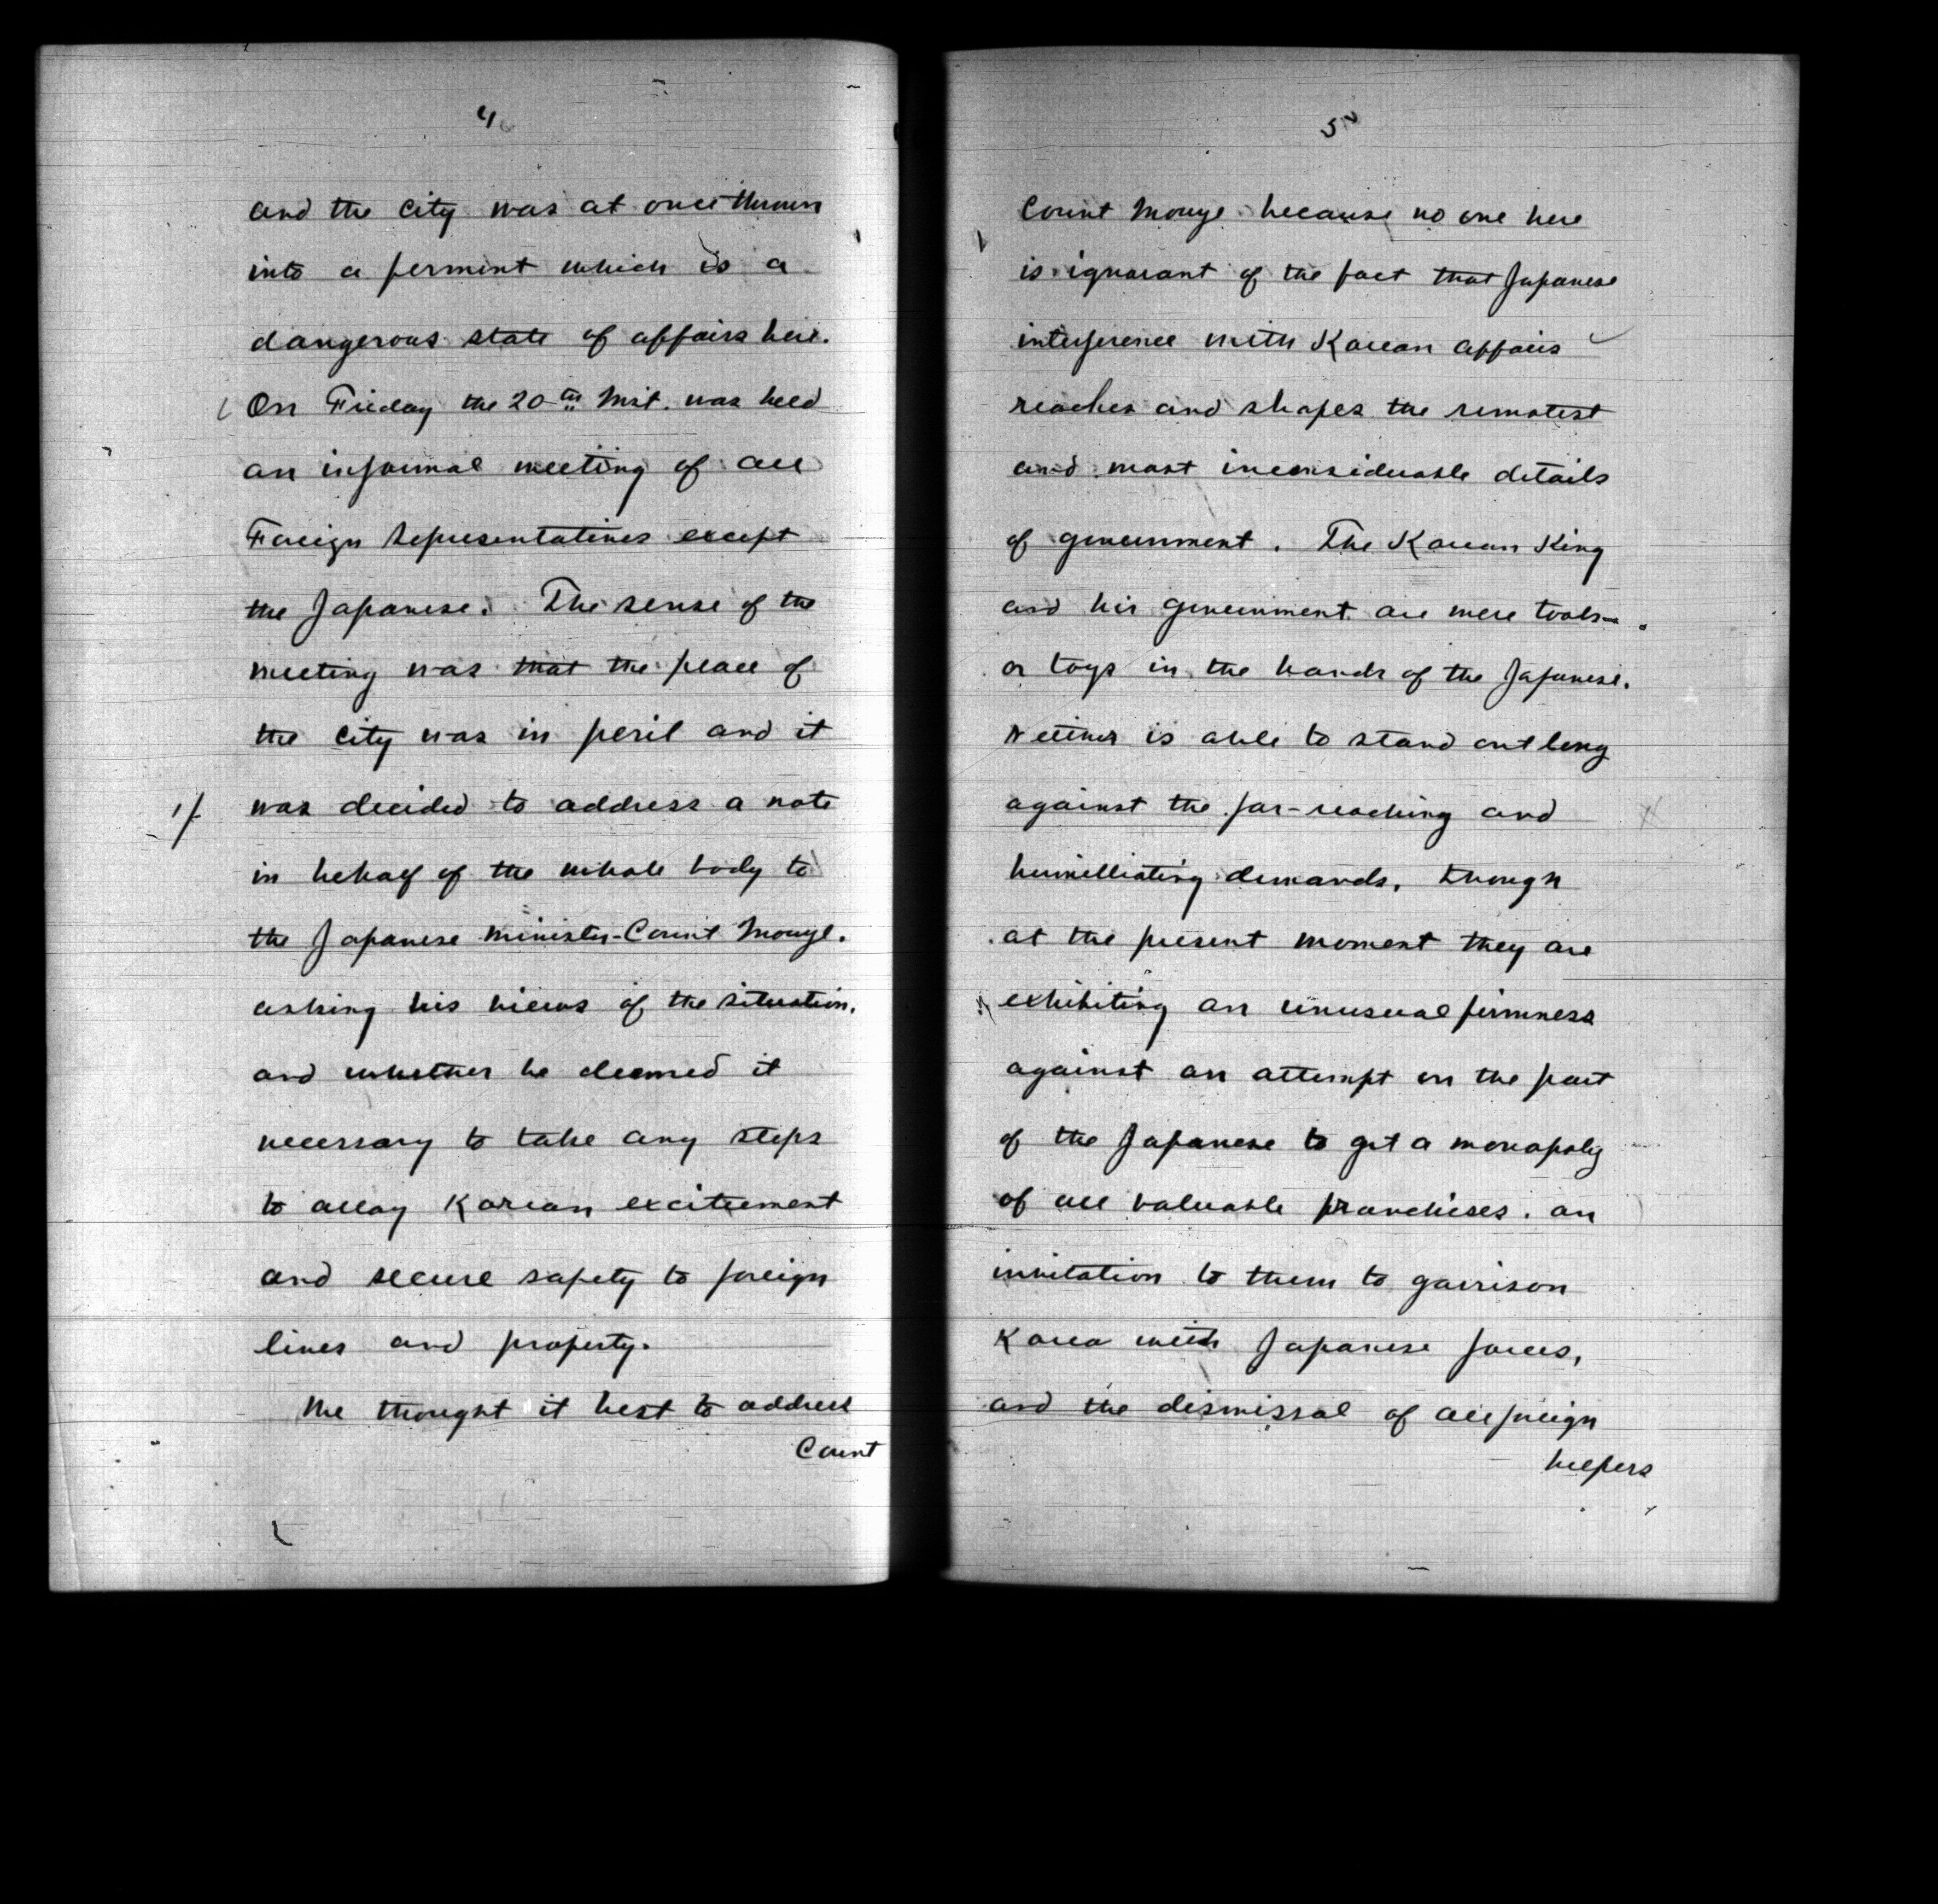 4
and the city was at once thrown
into a ferment which is a
dangerous state of affairs here.
On Friday the 20th Inst. was held
an informal meeting of all
Foreign Representatives except
the Japanese. The sense of the
meeting was that the peace of
the city was in peril and it
1/. was decided to address a note
in behalf of the whole body to
the Japanese Minister-Count Inouye.
asking his views of the situation,
and whether he deemed it
necessary to take any steps
to allay Korean excitement
and secure safety to foreign
lives and property.
We thought it best to address
Count
5
Count Inouye because no one here
is ignorant of the fact that Japanese
interference with Korean affairs
reaches and shapes the remotest
and most inconsiderable details
of government. The Korean King
and his government are mere tools
or toys in the hands of the Japanese.
Neither is able to stand out long
against the far-reaching and
humilliating demands, though
at the present moment they are
exhibiting an unusual firmness
against an attempt on the part
of the Japanese to get a monopoly
of all valuable franchises. an
invitation to them to garrison
Korea with Japanese forces,
and the dismissal of all foreign
helpers